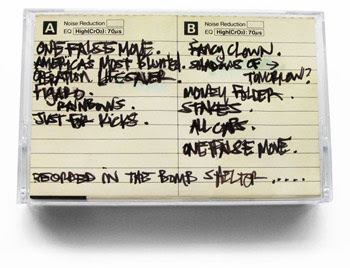 A
Noise Reduction
EQ High(CrO2): 70μs
ONE FALSE MOVE.
AMERICA'S MOST BLUNTED.
OPERATION LIFESAVER.
FIGARO.
RAINBOWS.
JUST FOR KICKS.
B
Noise Reduction
EQ High(CrO2): 70μs
FANCY CLOWN.
SHADOWS OF →
TOMORROW?
MONEY FOLDER.
STAKES.
ALL CAPS.
ONE FALSE MOVE.
RECORDED IN THE BOMB SHELTER.....